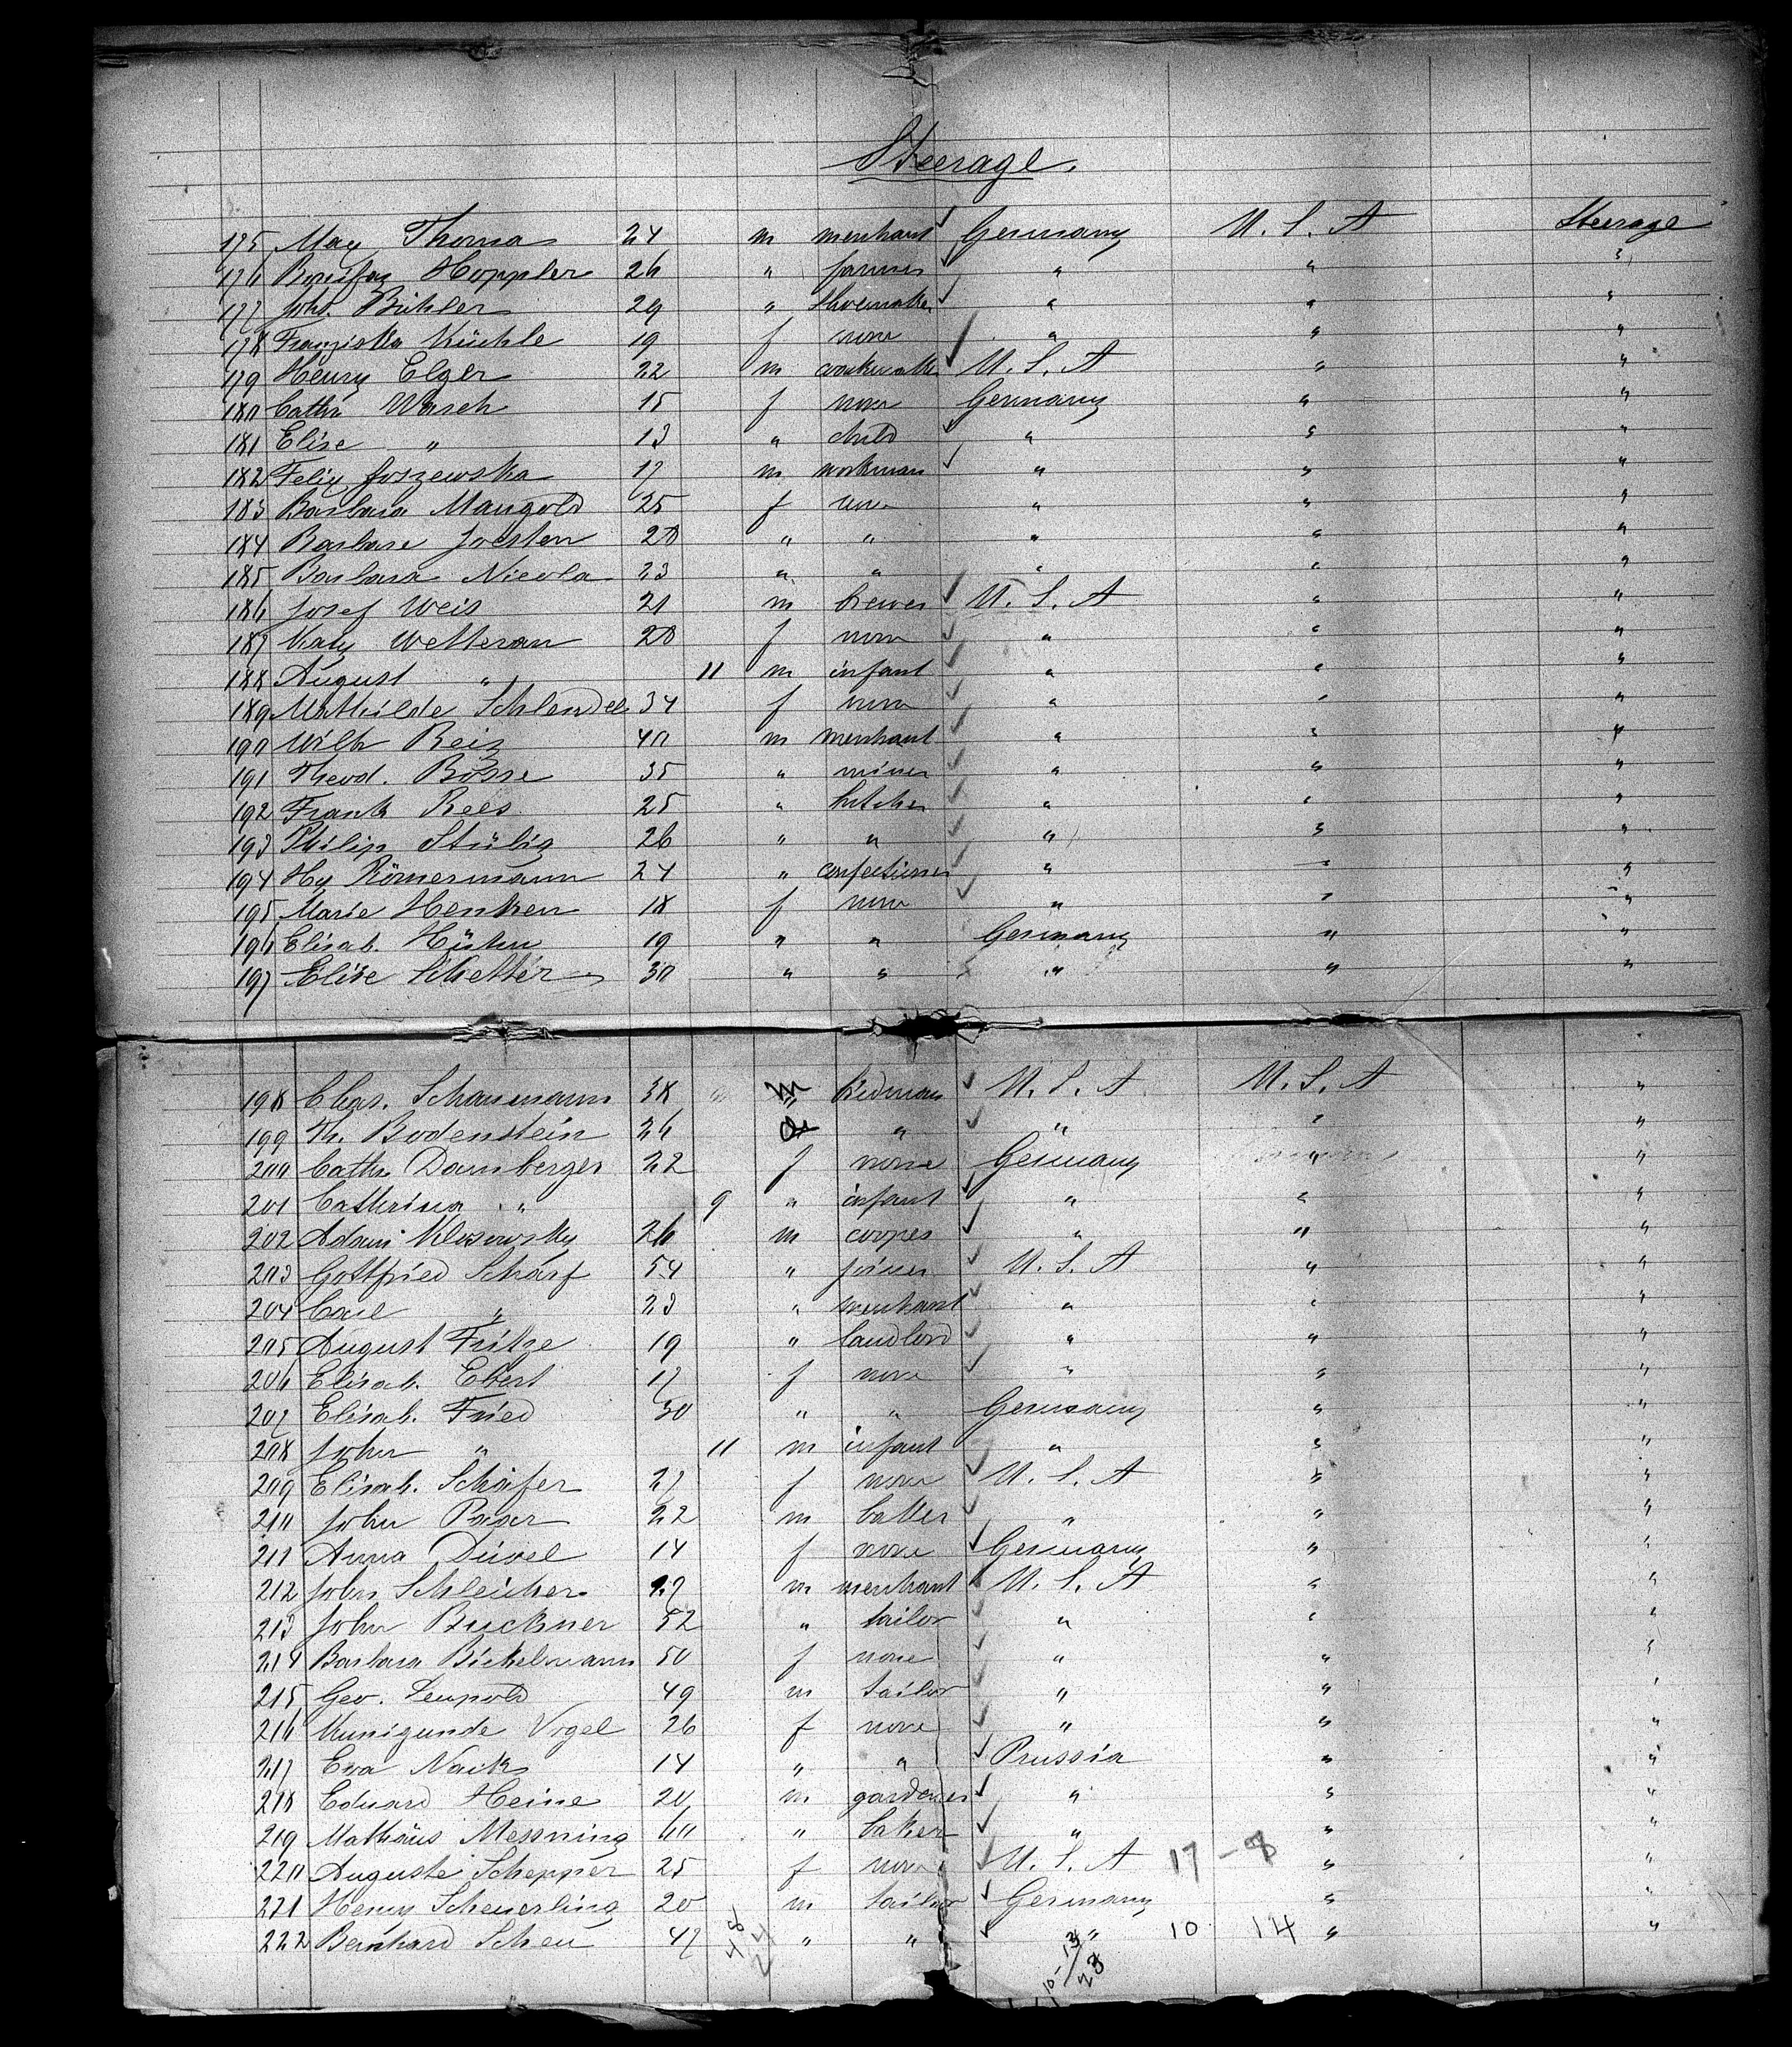 Steerage.
175 Max Thoma 24 m merchant Germany U. S. A Steerage
176 Bonifaz Hoppler 26 " farmer " " "
177 Joh. Bühler 29 " shoemaker " " "
178 Franziska Küchle 19 f none " " "
179 Henry Elger 22 m U. S. A " "
180 Cathr Wasch 15 f none Germany " "
181 Elise " 13 " child " " "
182 Felix Joszewska 17 m workman " " "
183 Barbara Mangold 25 f none " " "
184 Barbara Joesten 28 " " " " "
185 Barbara Nicola 23 " " " " "
186 Josef Weis 21 m brewer U. S. A " "
187 Katy Wetteran 28 f none " " "
188 August " 11 m infant " " "
189 Mathilde Schlendel 34 f none " " "
190 Wilh Reiz 40 m merchant " " "
191 Theod. Bosse 35 " miner " " "
192 Frank Rees 25 " butcher " " "
193 Philip Stülig 26 " " " " "
194 Hy Römermann 24 " confectioner " " "
195 Marie Henken 18 f none " " "
196 Elisab. Hühn 19 " " Germany " "
197 Elise Schetter 30 " " " " "
198 Chas. Schaumann 38 " m U. S. A U. S. A "
199 Th. Bodenstein 26 " " " "
200 Cathr Damberger 22 f none Germany " "
201 Cathrina " 9 " infant " " "
202 Adam Klosowsky 26 m cooper " " "
203 Gottfried Scharf 54 " joiner U. S. A " "
204 Carl " 23 " merchant " " "
205 August Fritze 19 " landlord " " "
206 Elisab. Ebert 17 f none " " "
207 Elisab. Fried 30 " " Germany " "
208 John " 11 m infant " " "
209 Elisab. Schäfer 27 f none U. S. A " "
210 John 22 m " " "
211 Anna Düvel 14 f none Germany " "
212 John Schleicher 27 m merchant U. S. A " "
213 John Buckner 52 " tailor " " "
214 Barbara Bickelmann 50 f none " " "
215 Geo. Leupold 49 m tailor " " "
216 Kunigunde Vogel 26 f none " " "
217 Eva Nack 14 " " Prussia " "
218 Eduard Heine 20 m gardener " " "
219 Mathäus Messning 60 " baker " " "
220 Auguste Schepper 25 f none U. S. A 17 - 8 " "
221 Henry Scheuerling 20 m tailor Germany " "
222 Bernhard Scheu 47 " " " 10 14 " "
48
24
10-13/23